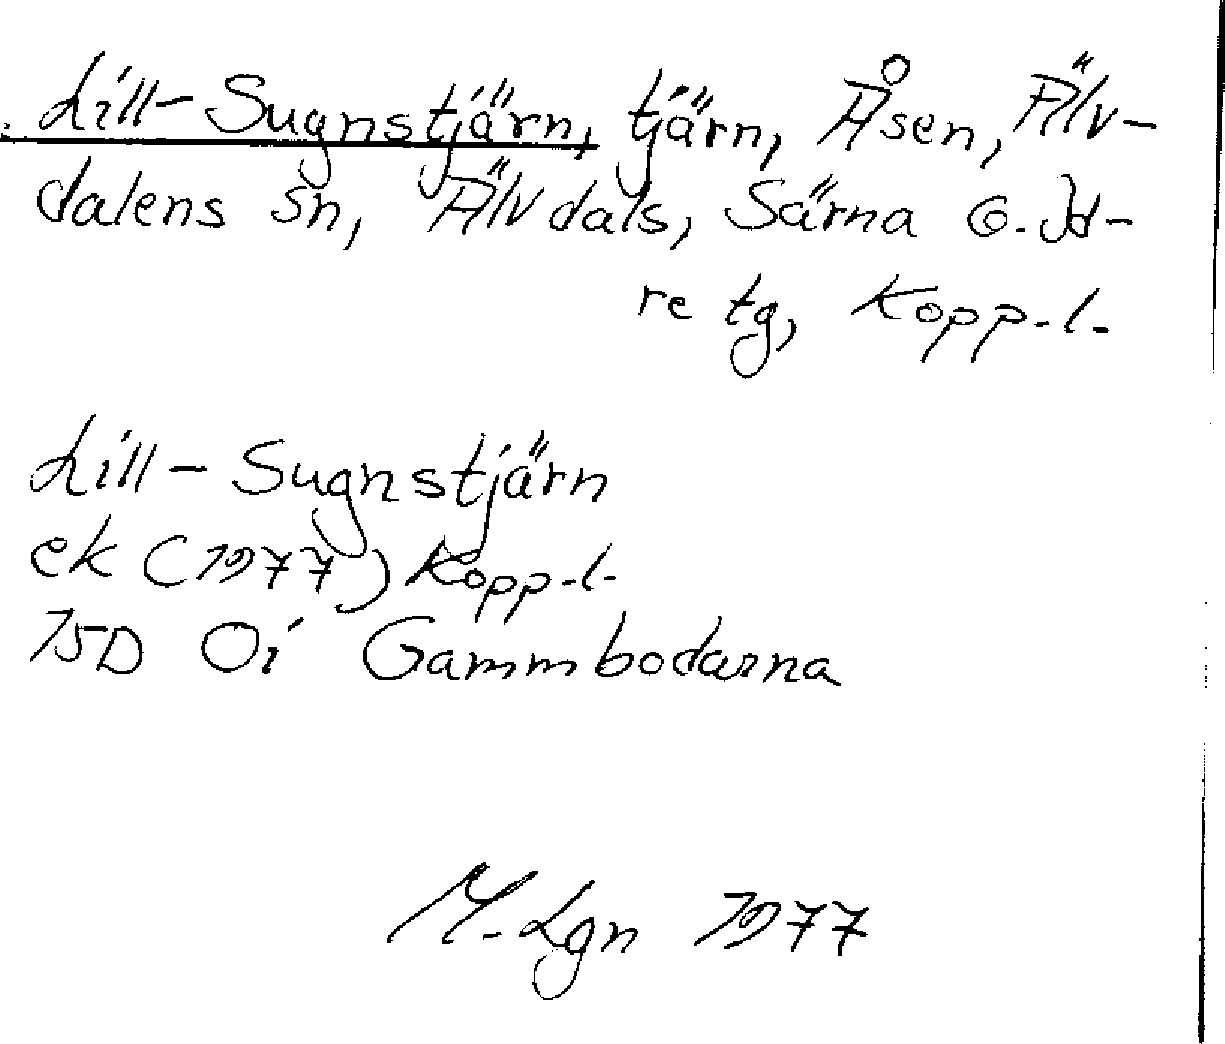 Lill-Sugnstjärn, tjärn, Åsen, Älv-
dalens sn, Älvdals, Särna o. Id-
re tg, Kopp.l.
Lill-Sugnstjärn
ek (1977) Kopp.l.
15D Oi Gammbodarna
M. Lgn 1977